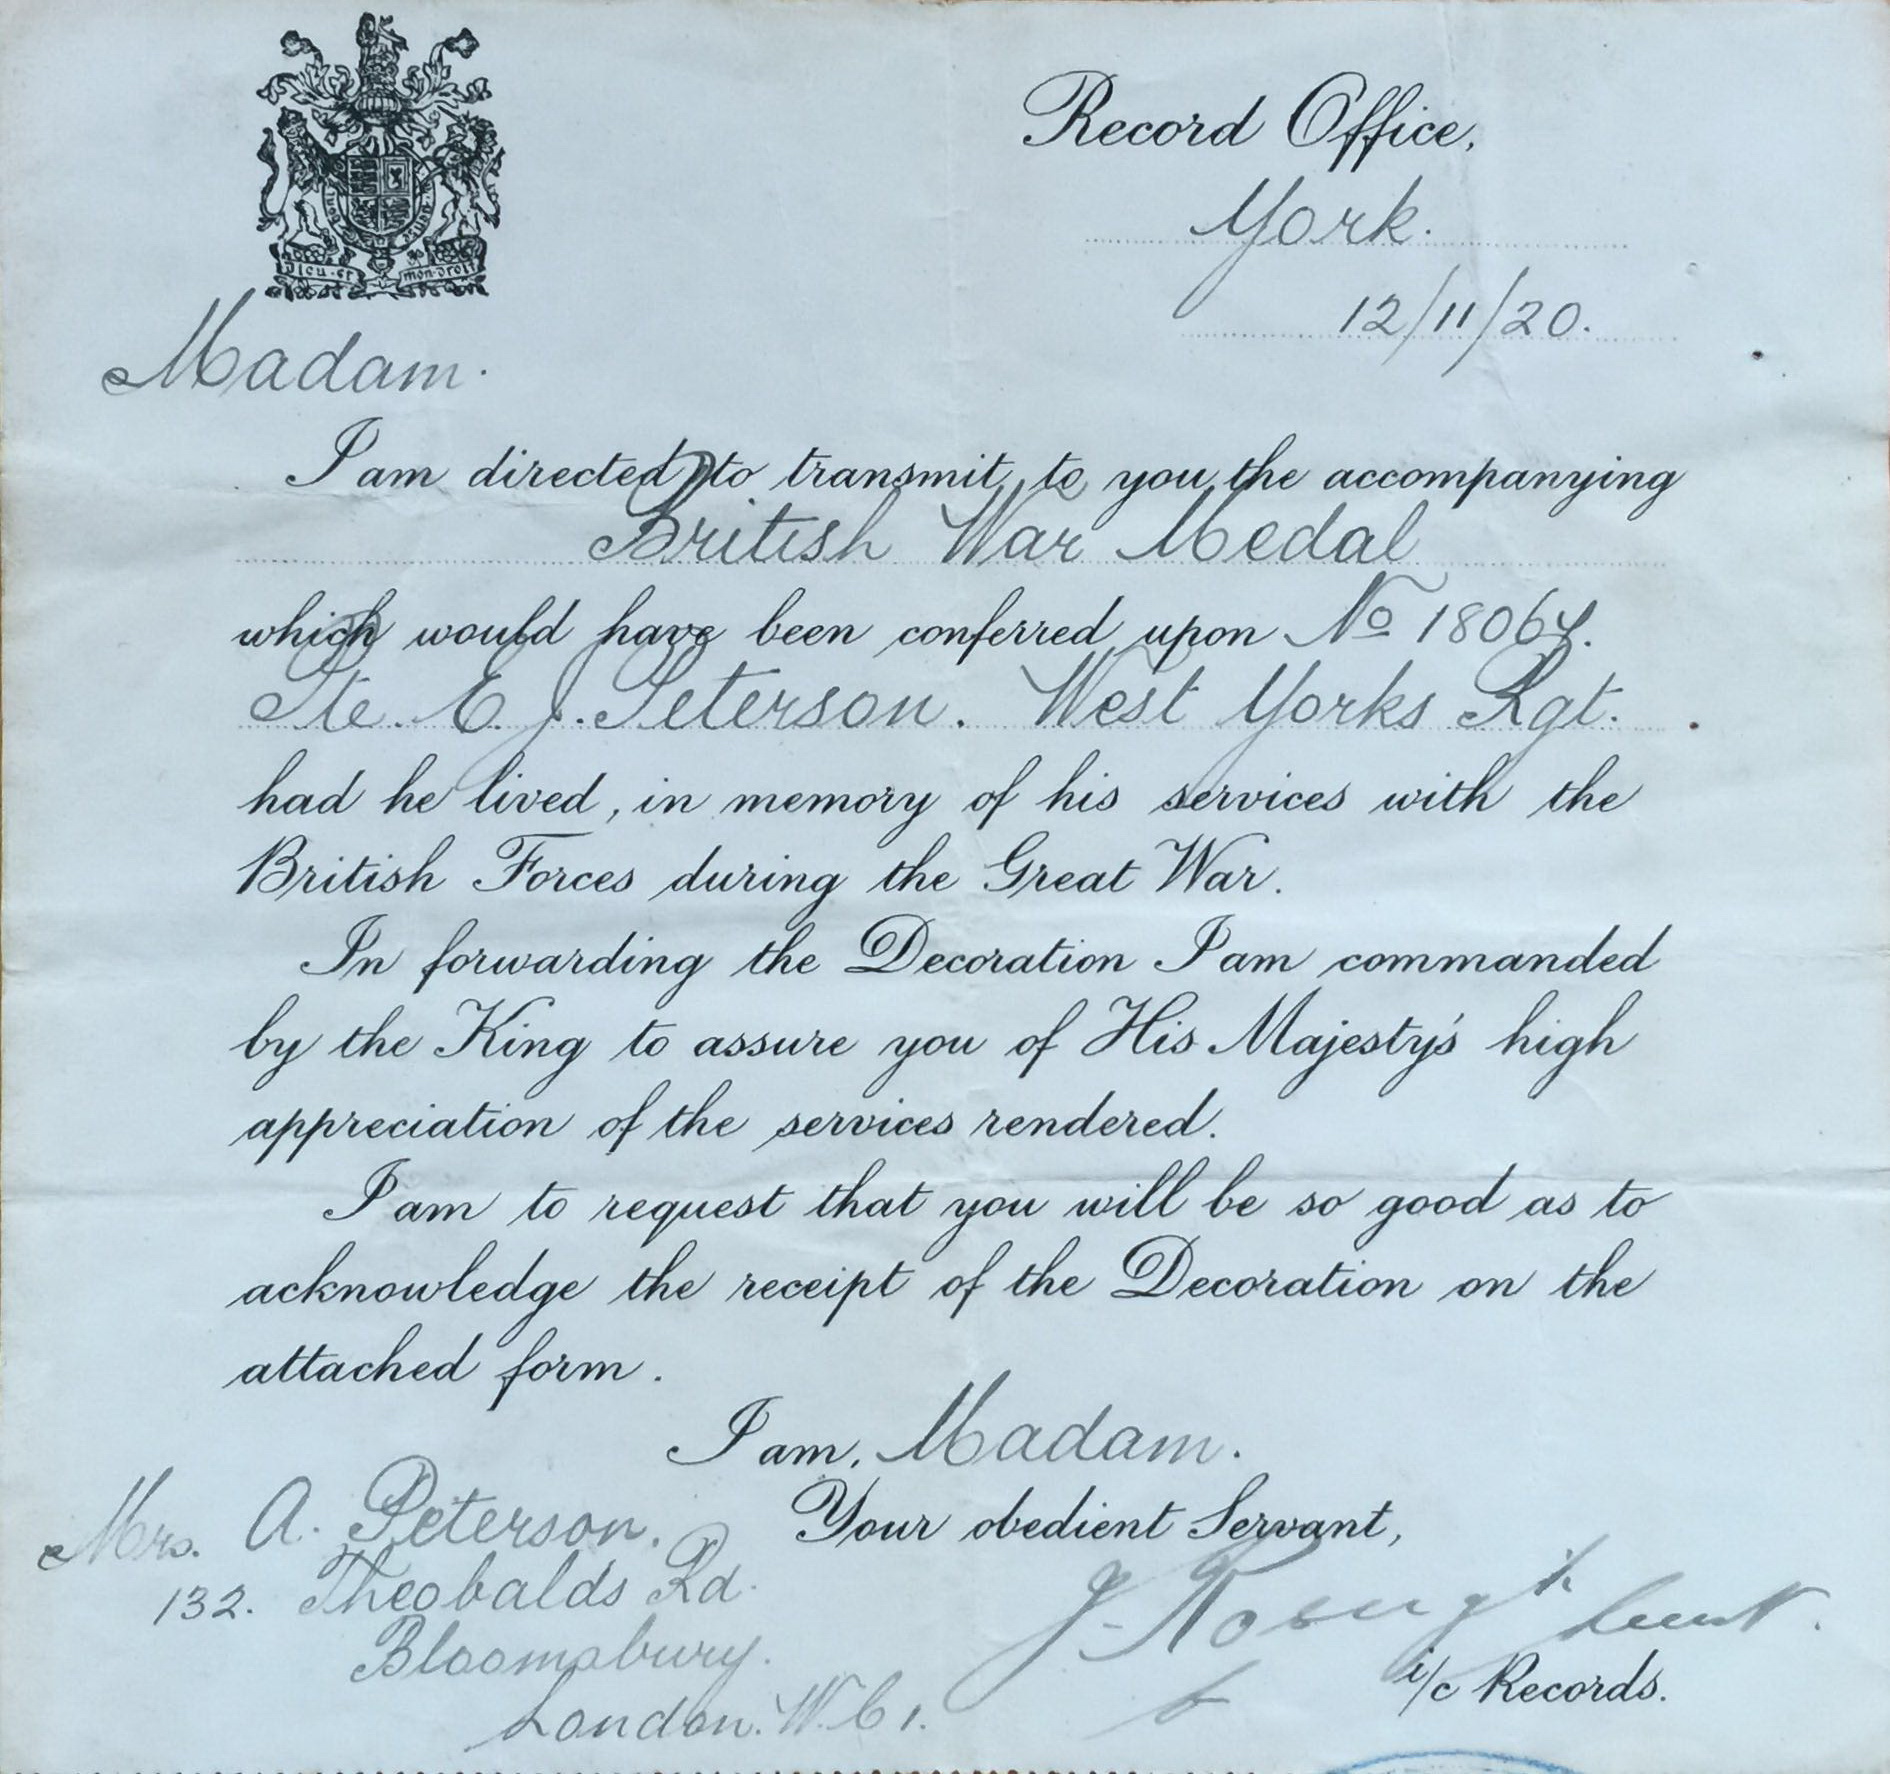 Dieu et mon droit
Record Office,
York.
12/11/20.
Madam.
I am directed to transmit to you the accompanying
British War Medal
which would have been conferred upon No 18064.
Pte. E. J. Peterson. West Yorks Rgt.
had he lived, in memory of his services with the
British Forces during the Great War.
In forwarding the Decoration I am commanded
by the King to assure you of His Majesty's high
appreciation of the services rendered.
I am to request that you will be so good as to
acknowledge the receipt of the Decoration on the
attached form.
I am, Madam.
Your obedient Servant,
i/c Records.
Mrs. A. Peterson.
132. Theobalds Rd.
Bloomsbury.
London. W.C1.